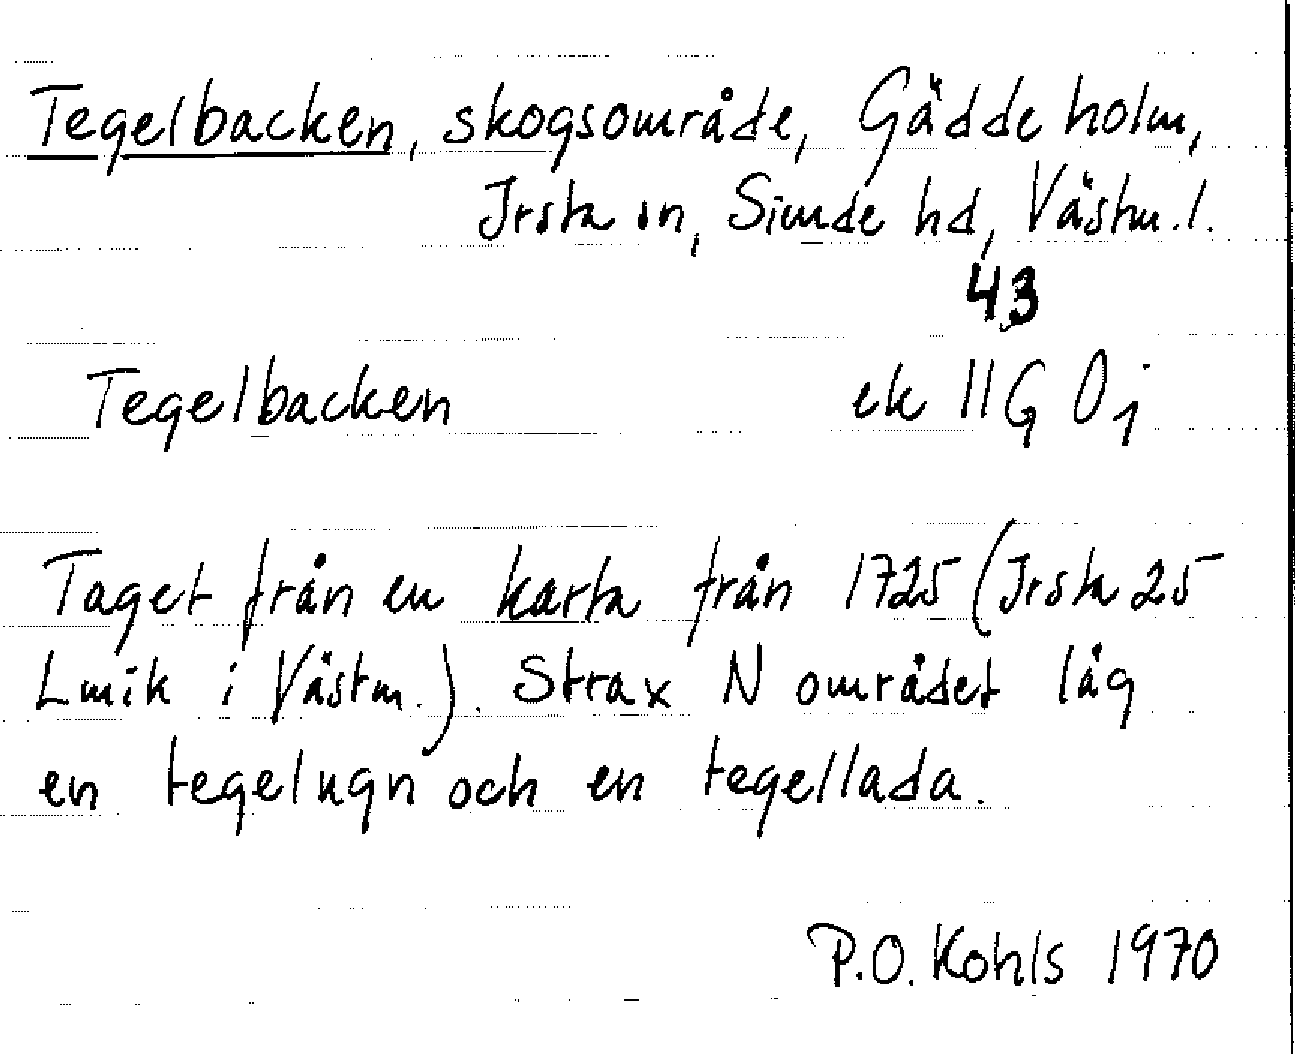 Tegelbacken, skogsområde, Gäddeholm,
Irsta sn, Simde hd, Västm. l.
43
Tegelbacken ek 11G 0j
Taget från en karta från 1725 (Irsta 25
Lmik i Västm.). Strax N området låg
en tegelugn och en tegellada.
P.O. Kohls 1970